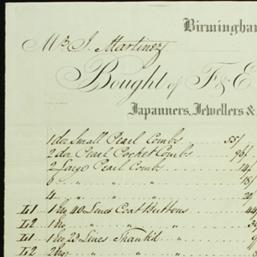 Birmingha
Mr J. Martinez
Bought of F & E
Japanners, Jewellers &
1 doz Small Pearl Combs .. 55/
2 doz Pearl Pocket Combs .. 96/
2 Large Pearl Combs .. 14
6 " " " .. 18/
4 " " " .. 20
1 Gro 40 Lines Coat Buttons .. 44
1 Gro " " "
1 Gro 23 Lines Shank'd
2 Gro